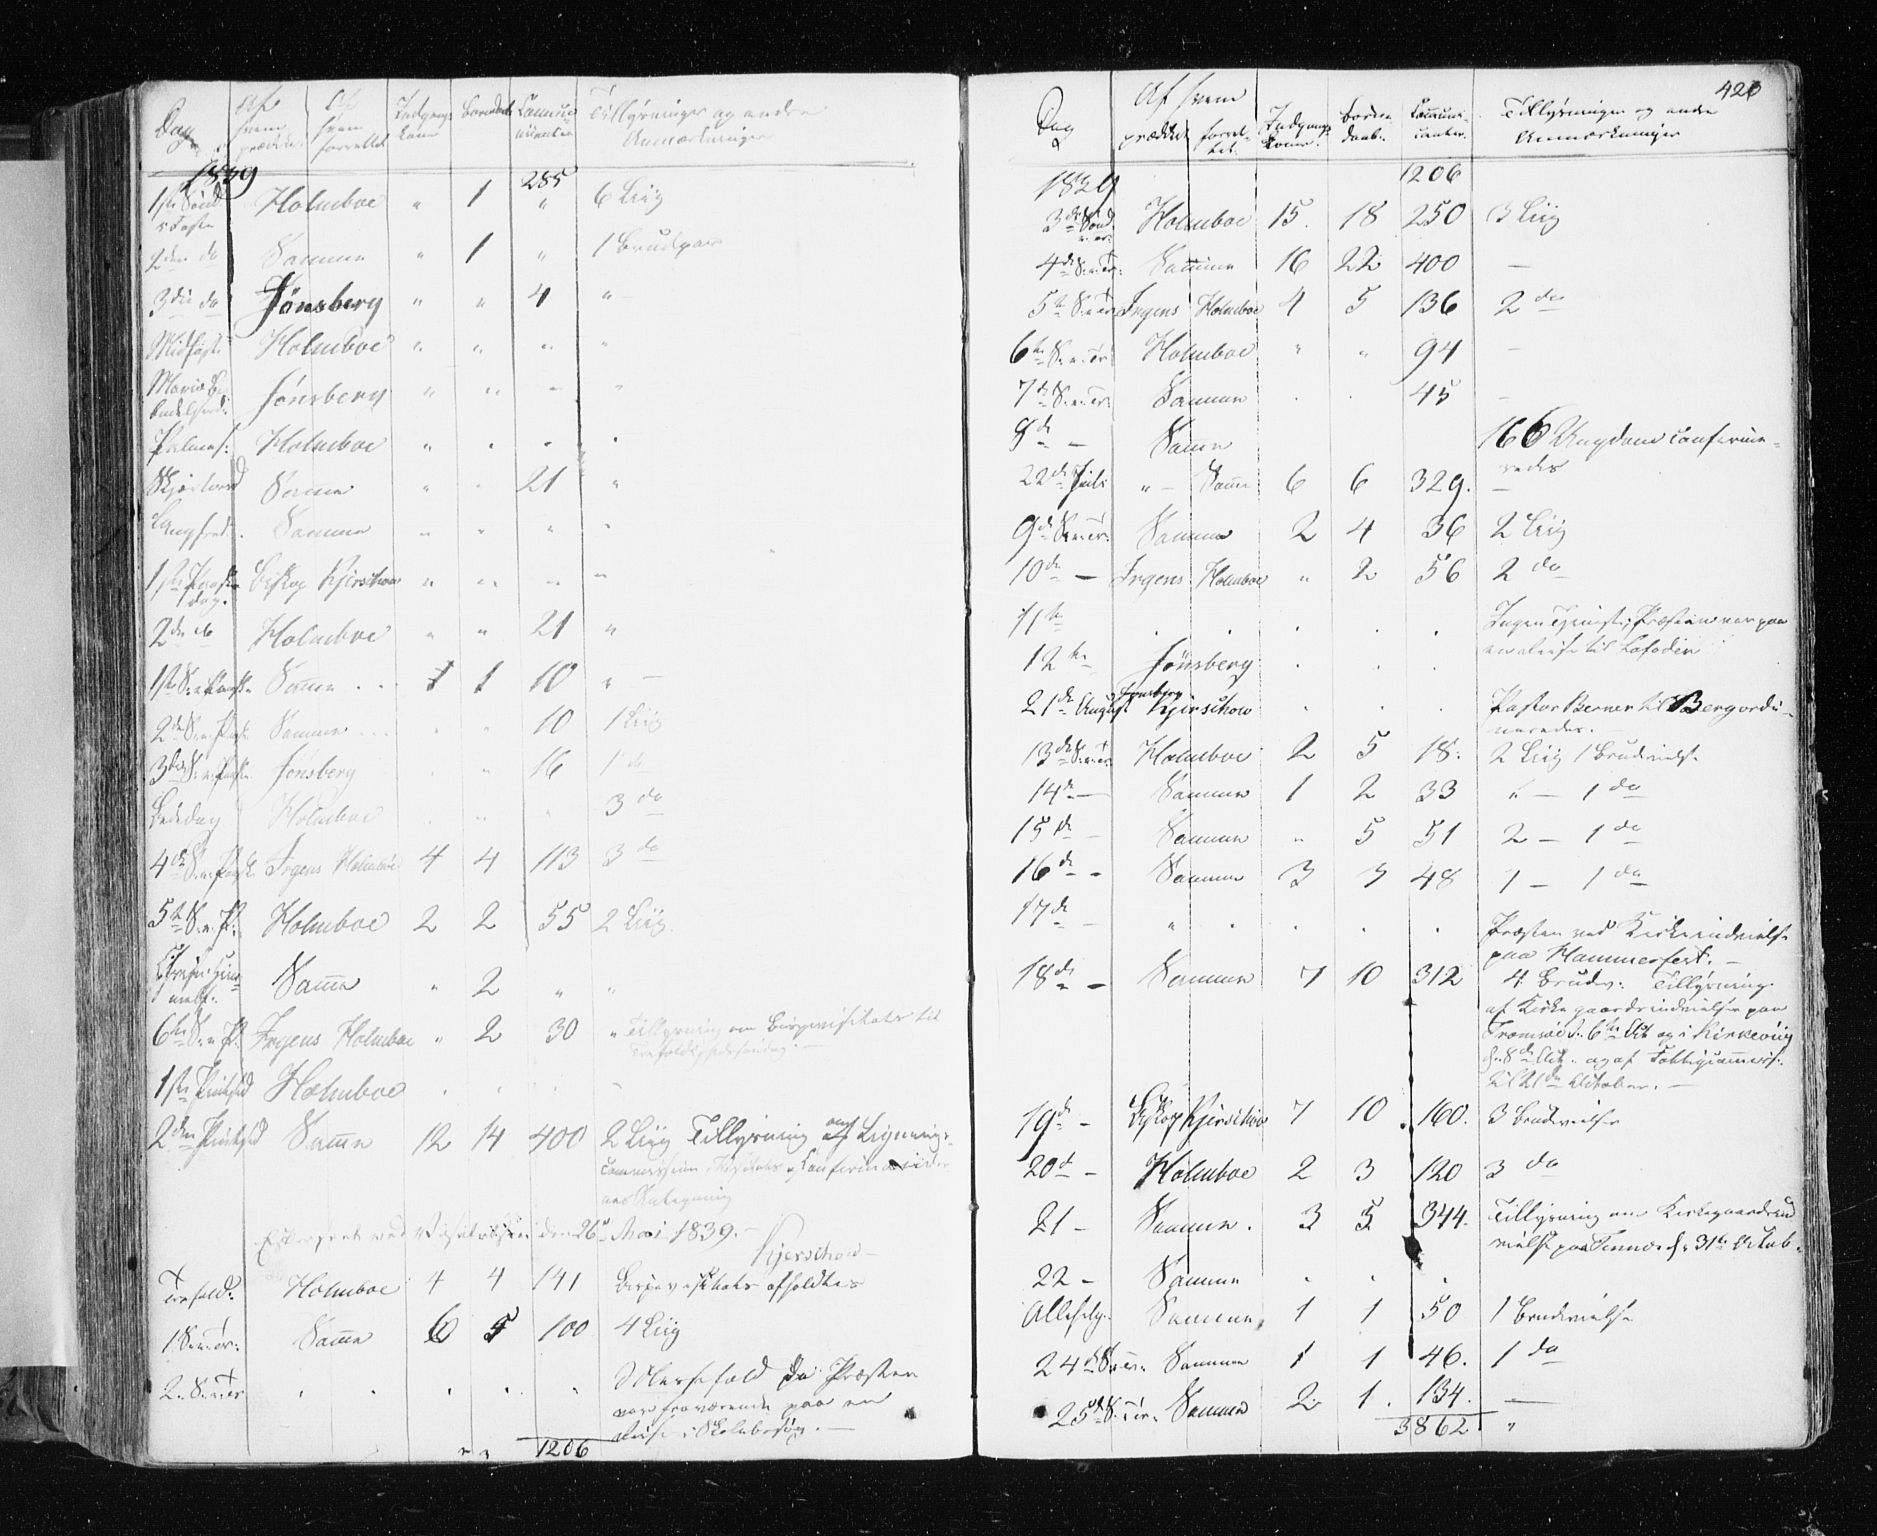 Dag Af hvem prædiket Af hvem forrettet Indgangs koner Barnedaab Communicanter Tillysninger og andre Anmærkninger
1839 285
1ste Sønd i Faste Holmboe " 1 " 6 Liig
2den do Samme " 1 " 1 Brudpar
3die do Jönsberg " " 4 "
Midfaste Holmboe " " " "
Mariæ Bebudelsesd: Jönsberg " " " "
Palmes: Holmboe " " " "
Skjærtorsd Samme " " 21 "
Langfred: Samme " " " "
1ste Paaskedag. Biskop Kjerschow " " " "
2den do Holmboe " " 21 "
1ste S. e. Paaske Samme 1 1 10 "
2den S. e. Paaske Samme 10 1 Liig
3die S. e. Paaske Jönsberg " " 16 1 do
Bededag Holmboe 3 do
4de S. e. Paaske Irgens Holmboe 4 4 113 3 do
5te S. e. P: Holmboe 2 2 55 2 Liig.
Christi Himmelf. Samme " 2 " "
6te S. e. P. Irgens Holmboe " 2 30 " Tillysning om Bispevisitats til
Trefoldighedssøndag. —
1ste Pintsed Holmboe
2den Pintsed Samme 12 14 400 2 Liig Tillysning om Lignings-
commission, Visitats og Confirmandernes Antegning
Efterseet ved Visitatsen den 26 Mai 1839. —
Kjerschow
Trefold: Holmboe 4 4 141 Bispevisitats afholdtes
1 S. e. Tr: Samme 6 5 100 4 Liig
2. S. e. Tr Messefald da Præsten
var fraværende paa en
Reise i Skolebesøg. —
1206
426
Dag Af hvem prædiket forrettet Indgangs koner. Barnedaab. Communicanter. Tillysninger og andre Anmærkninger
1839 1206
3die Sønd e. Tr: Holmboe 15. 18 250 3 Liig
4de S. e. Tr: Samme 16 22 400 —
5te S. e. Tr Irgens Holmboe 4 5 136 2 do
6te S. e. Tr: Holmboe " " 94 —
7de S. e. Tr: Samme 45 —
8de — Samme 166 Ungdom confirmeredes
22de Juli " — Samme 6 6 329. —
9de S. e. Tr: Samme 2 4 36 2 Liig
10de — Irgens Holmboe " 2 56 2 do
11te Ingen Tjeneste; Præsten var paa
en Reise til Lofoden
12te Jönsberg
21de August Jonsberg Kjerschow Pastor Berner til Berg ordineredes.
13de S. e. Tr Holmboe 2 5 18. 2 Liig 1 Brudevielse
14de — Samme 1 2 33 " — 1 do
15de — Samme " 5 51 2 — 1 do
16de — Samme 3 3 48 1 — 1 do
17de — " Præsten ved Kirkeindvielse
paa Hammerfest. —
18de — Samme 7 10 312 4 Brudev: Tillysning
af Kirkegaardsindvielse paa
Tromsøe d. 6te Oct og i Kirkeviig
d. 8de Oct. og af Fattigcommis:
til 21de October. —
19de — Biskop Kjerschow 7 10 160. 3 Brudevielse
20de — Holmboe 2 3 120 3 do
21 — Samme. 3 5 344. Tillysning om Kirkegaardsind
vielse paa d. 31te Octob.
22 — Samme
Allehelg. Samme 1 1 50 1 Brudevielse
24de S. e. Tr: Samme 1 1 46. 1 do
25de S. e. Tr: Samme 2 1. 134. —
3862 "